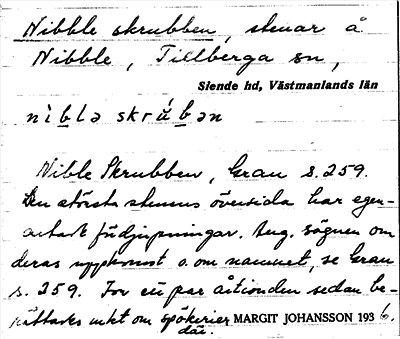 Nibble skrubben, stenar å
Nibble, Tillberga sn,
Siende hd, Västmanlands län
nìblə skrúbən
Nible Skrubben, Grau s. 259.
Den största stenens översida har egen-
artade fördjupningar. Ang. sägnen om
deras uppkomst o. om namnet, se Grau
s. 259. För ett par årtionden sedan be-
rättades mkt om spökerier
där.
MARGIT JOHANSSON 1936.